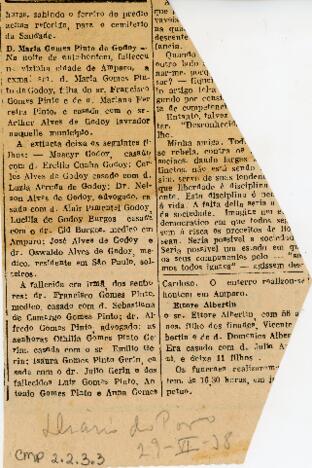 horas, sahindo o feretro do predio
acima referido, para o cemiterio
da Saudade.
D. Maria Gomes Pinto de Godoy —
Na noite de ante-hontem, falleceu
na vizinha cidade de Amparo, a
exma. sra. d. Maria Gomes Pin-
to de Godoy, filha do sr. Francisco
Gomes Pinto e de d. Mariana Fer-
reira Pinto, e casada com o sr.
Arthur Alves de Godoy lavrador
naquelle municipio.
A extincta deixa os seguintes fi-
lhos: — Moacyr Godoy, casado
com d. Ercilia Cunha Godoy; Car-
los Alves de Godoy casado com d.
Luzia Arruda de Godoy; Dr. Nel-
son Alves de Godoy, advogado, ca-
sado com d. Alair Pimentel Godoy,
Lucilla de Godoy Burgos, casada
com o dr. Cid Burgos, medico em
Amparo; José Alves de Godoy e
dr. Oswaldo Alves de Godoy, me-
dico, residente em São Paulo, sol-
teiros.
A fallecida era irmã dos senho-
res: dr. Francisco Gomes Pinto,
medico, casado com d. Sebastiana
de Camargo Gomes Pinto; dr. Al-
fredo Gomes Pinto, advogado; as
senhoras Othilia Gomes Pinto Ge-
rin, casada com o sr. Emilio Ge-
rin; Isaura Gomes Pinto Gerin, ca-
sada com o dr. Julio Gerin e dos
fallecidos Luiz Gomes Pinto, An-
tonio Gomes Pinto e Anna Gomes
vavois
na qual
descente
fancia.
Quando
outro lad
nar-me por
sar?
artigo
gando por
ta de competen
Entanto, talvez
"Desconheci
lho.
Minha amiga. Tod
se rebela, contra os
micos, dando largas
tinctos, não está sendo
sim. servo de suas
que liberdade é disciplina
ente. Esta disciplina é
vida. A falta della seria o
da sociedade. Imagine um es
democratico em que todos se
em á risca os preceitos de Ho
sean. Seria possivel a sociedade
Seria possivel um estado em que
os seus componentes pelo — "so-
mos todos iguaes" — agissem des-
Cardoso. O enterro realizou-se
hontem em Amparo.
Ettore Albertin
o sr. Ettore Albertin, com 55 an-
nos, filho dos finados, Vicente
Albertin e de d. Domenica Alber
Era casado com d. Julia A
ni, e deixa 11 filhos.
Os funeraes realizaram
tem ás 16,30 horas, em ja
peto.
Diario do Povo
29-VI-38
CMP 2.2.3.3